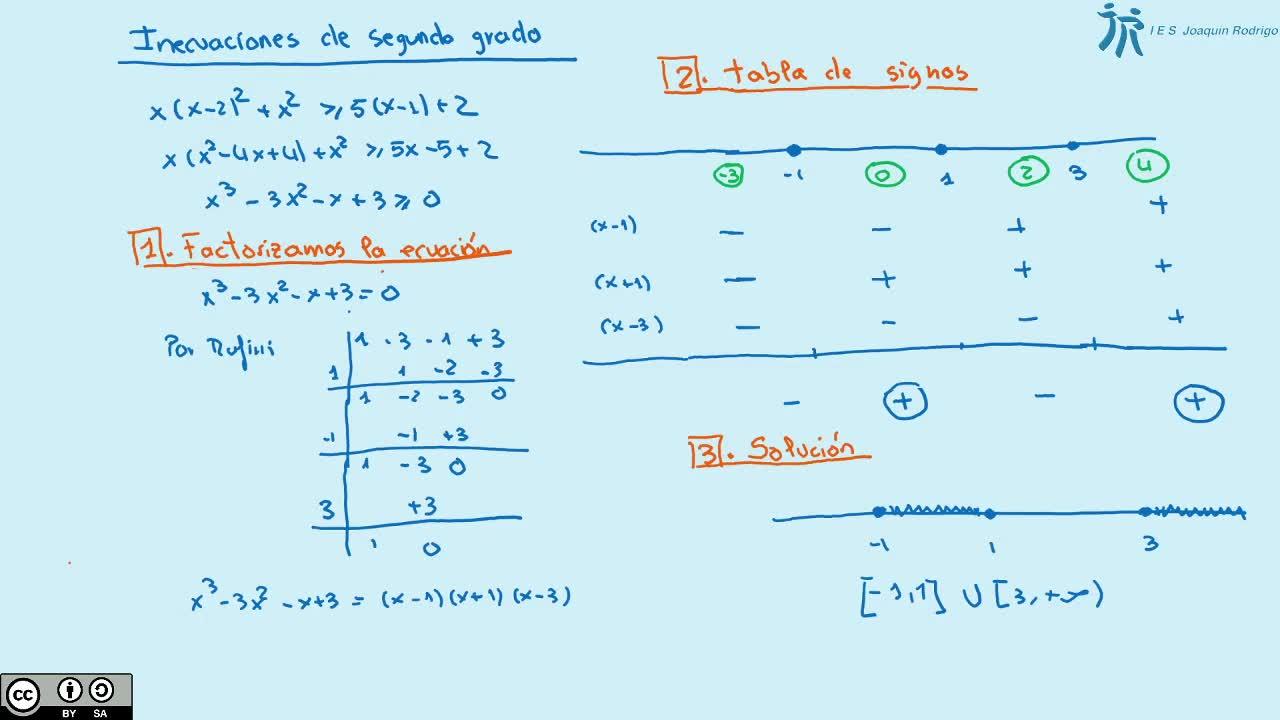 Inecuaciones de segundo grado
x(x-2)² + x² ⩾ 5(x-1) + 2
x(x²-4x+4) + x² ⩾ 5x-5+2
x³ - 3x² - x + 3 ⩾ 0
1. Factorizamos la ecuación
x³ - 3x² - x + 3 = 0
Por Rufini
1 -3 -1 +3
1 1 -2 -3
1 -2 -3 0
-1 -1 +3
1 -3 0
3 +3
1 0
x³ - 3x² - x + 3 = (x-1)(x+1)(x-3)
IES Joaquin Rodrigo
2. tabla de signos
-3 -1 0 1 2 3 4
(x-1) - - + +
(x+1) - + + +
(x-3) - - - +
- + - +
3. Solución
-1 1 3
[-1,1] ∪ [3,+∞)
cc
BY SA